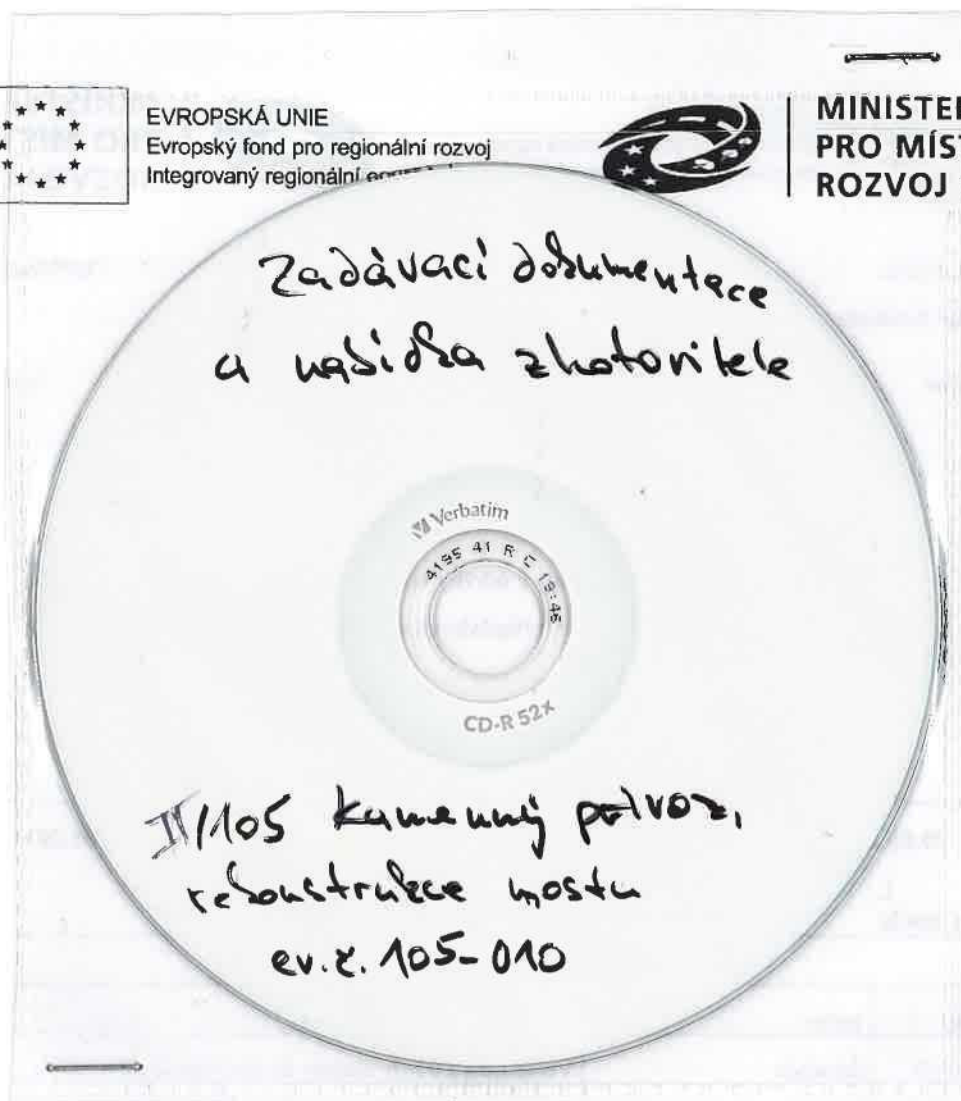 EVROPSKÁ UNIE
Evropský fond pro regionální rozvoj
Integrovaný regionální
MINISTE
PRO MÍST
ROZVOJ
Zadávací dokumentace
a nabídka zhotovitele
Verbatim
4195 41 R C 19:46
CD-R 52x
II/105 Kamenný přívoz,
rekonstrukce mostu
ev.č. 105-010